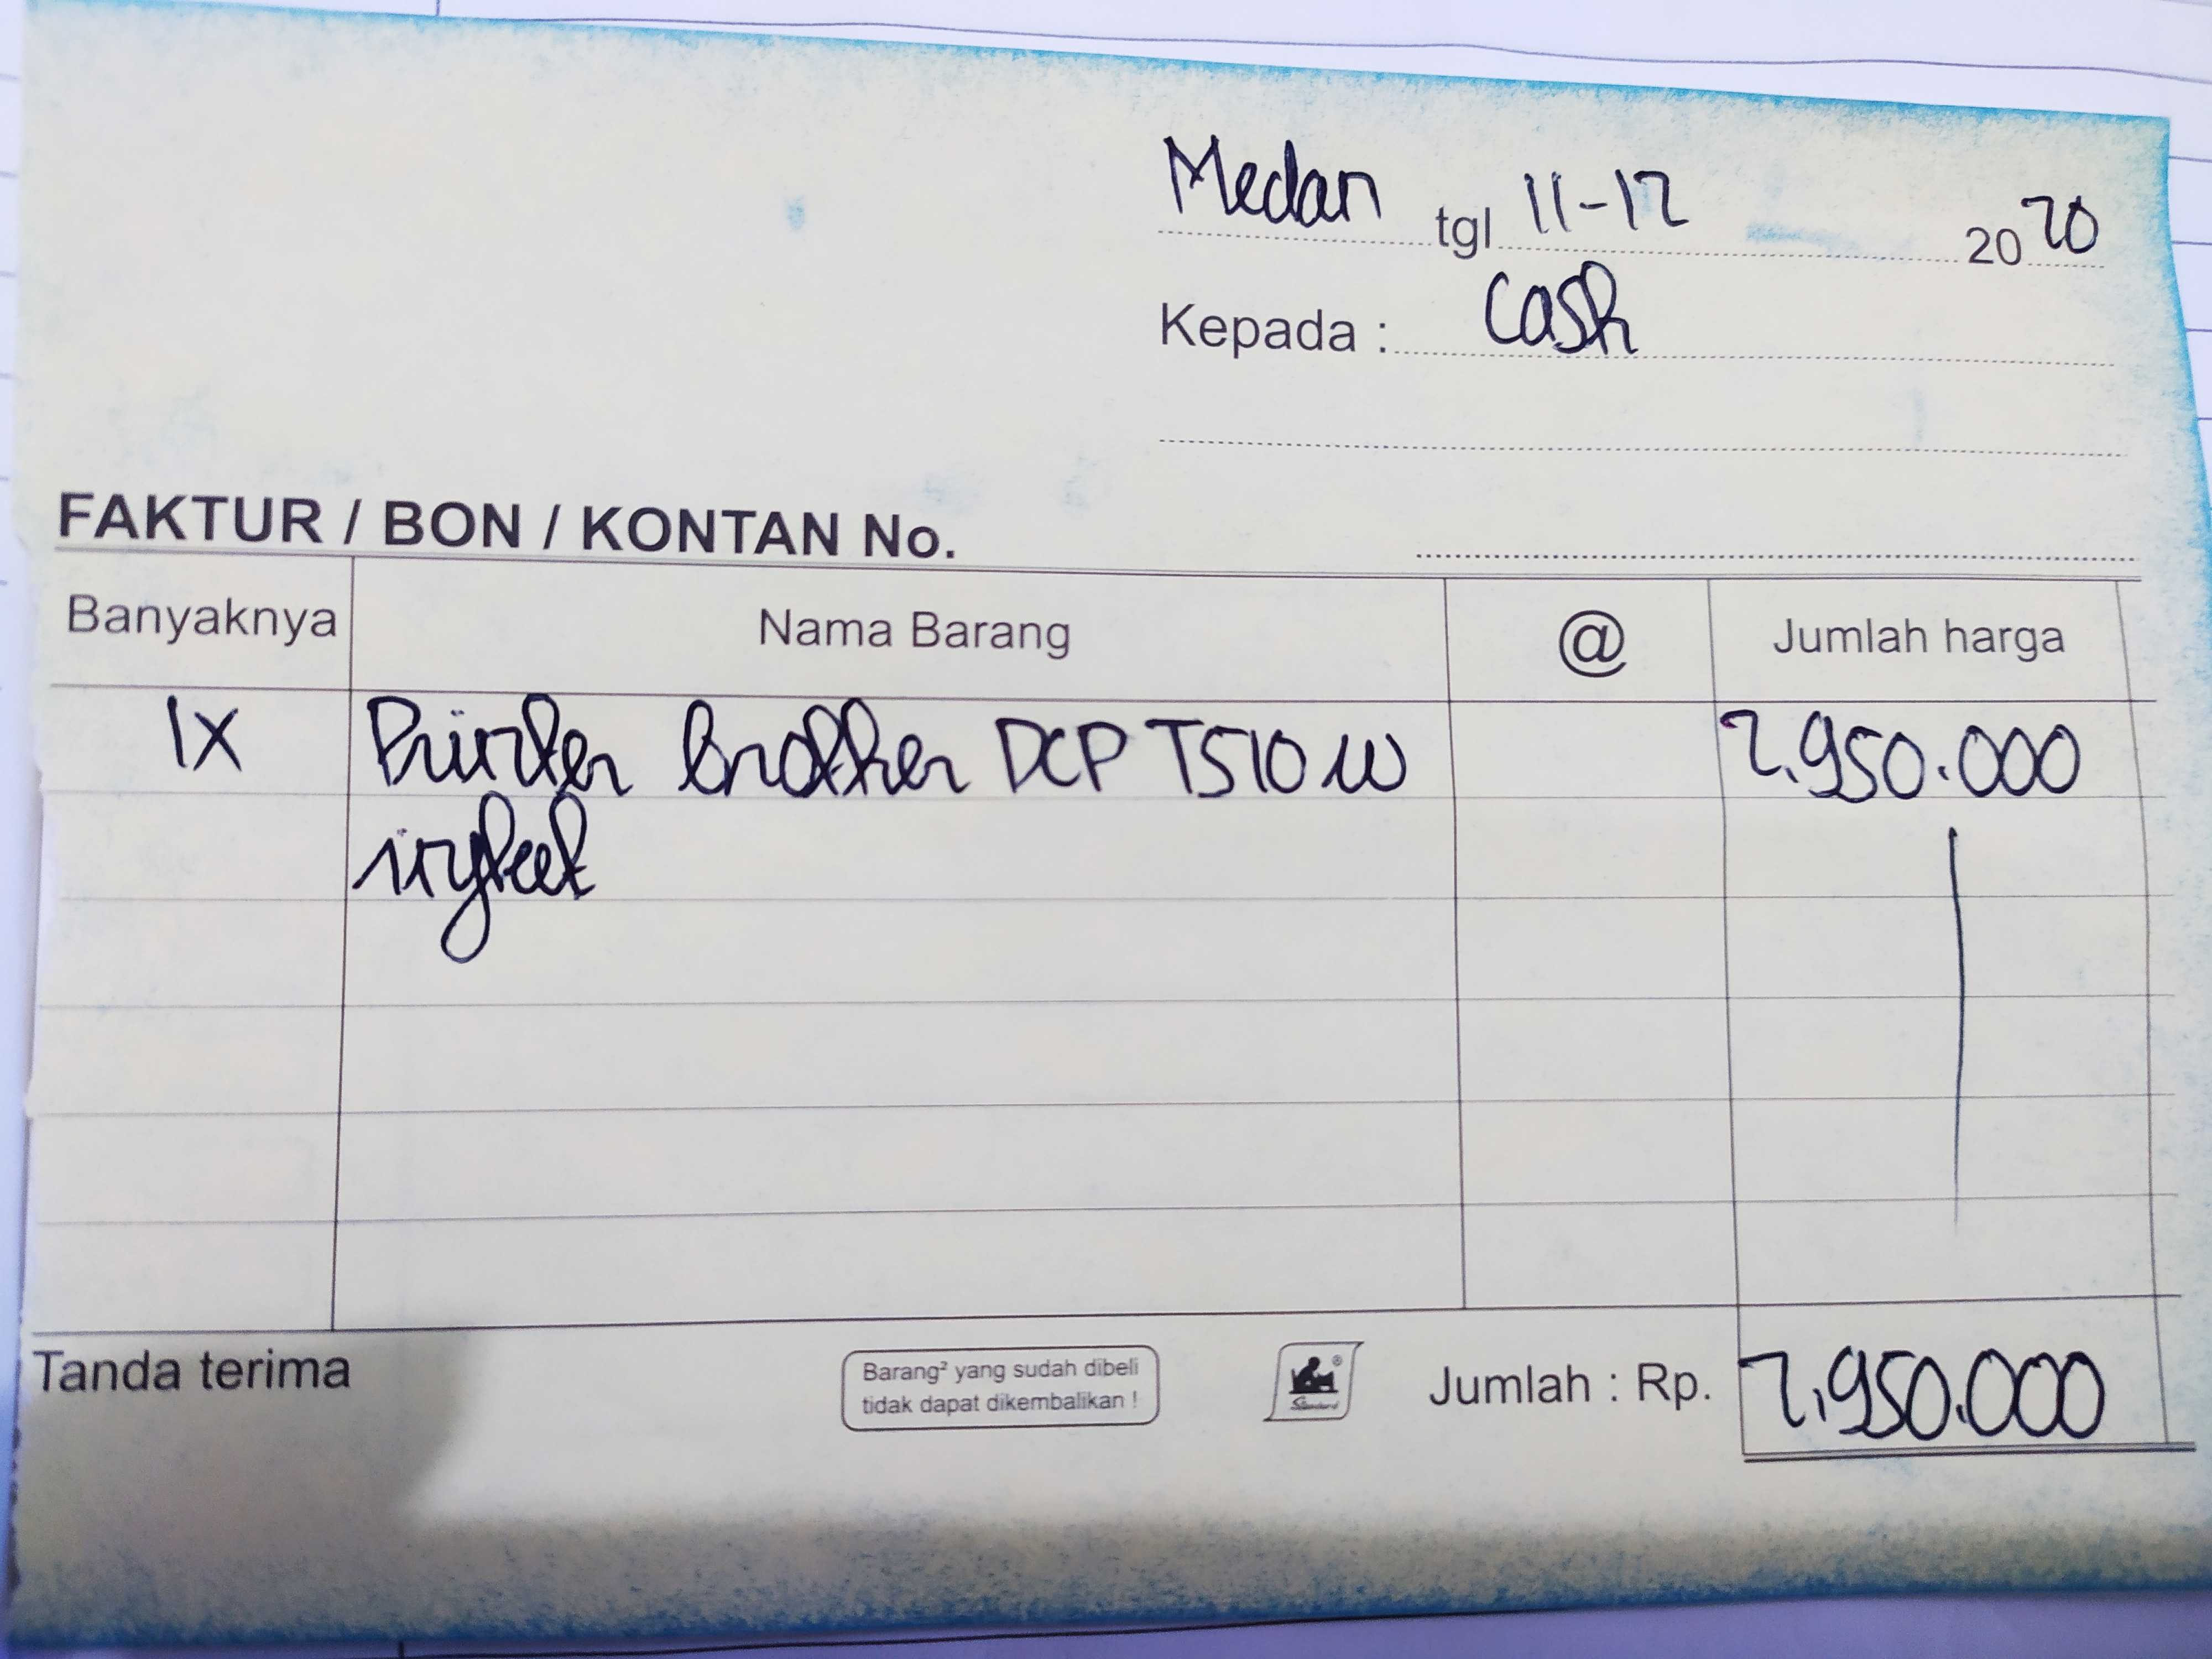 Medan tgl 11-12 2020
Kepada : Cash
FAKTUR / BON / KONTAN No.
Banyaknya Nama Barang @ Jumlah harga
1X Printer brother DCP T510W 2.950.000
inkjet
Tanda terima
Barang² yang sudah dibeli
tidak dapat dikembalikan !
®
Standard
Jumlah : Rp. 2.950.000